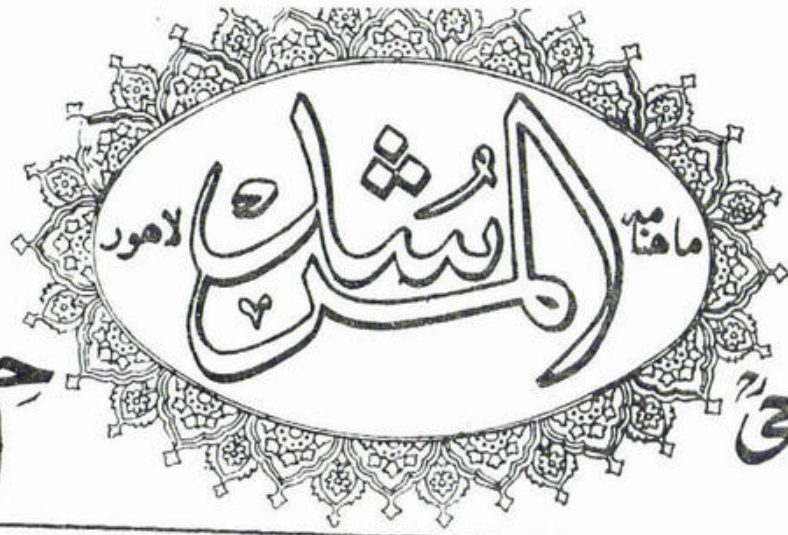 ماهنامہ المرشد لاهور